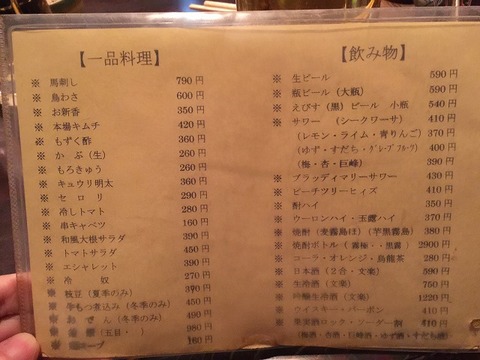 【一品料理】
※ 馬刺し 790円
※ 鳥わさ 600円
※ お新香 350円
※ 本場キムチ 420円
※ もずく酢 360円
※ かぶ(生) 260円
※ もろきゅう 260円
※ キュウリ明太 360円
※ セロリ 290円
※ 冷しトマト 280円
※ 串キャベツ 160円
※ 和風大根サラダ 390円
※ トマトサラダ 450円
※ エシャレット 390円
※ 冷奴 270円
※ 枝豆(夏季のみ) 390円
もつ煮込み(冬季のみ) 450円
おでん(冬季のみ) 490円
(五目・) 980円
スープ 160円
【飲み物】
※ 生ビール 590円
※ 瓶ビール(大瓶) 590円
※ えびす(黒)ビール 小瓶 540円
※ サワー (シークワーサ) 410円
(レモン・ライム・青りんご) 370円
(ゆず・すだち・グレープフルーツ) 400円
(梅・杏・巨峰) 390円
※ ブラッディマリーサワー 430円
※ ピーチツリーヒィズ 410円
※ 酎ハイ 350円
※ ウーロンハイ・玉露ハイ 370円
※ 焼酎(麦霧島ほ)(芋黒霧島) 380円
※ 焼酎ボトル(霧極・黒霧) 2900円
※ コーラ・オレンジ・烏龍茶 280円
※ 日本酒(2合・文楽) 590円
※ 生冷酒(文楽) 750円
※ 吟醸生冷酒(文楽) 1220円
※ ウイスキー・バーボン 410円
※ 果実酒ロック・ソーダー割 410円
(梅酒・杏酒・巨峰酒・ゆず酒・すだち酒)